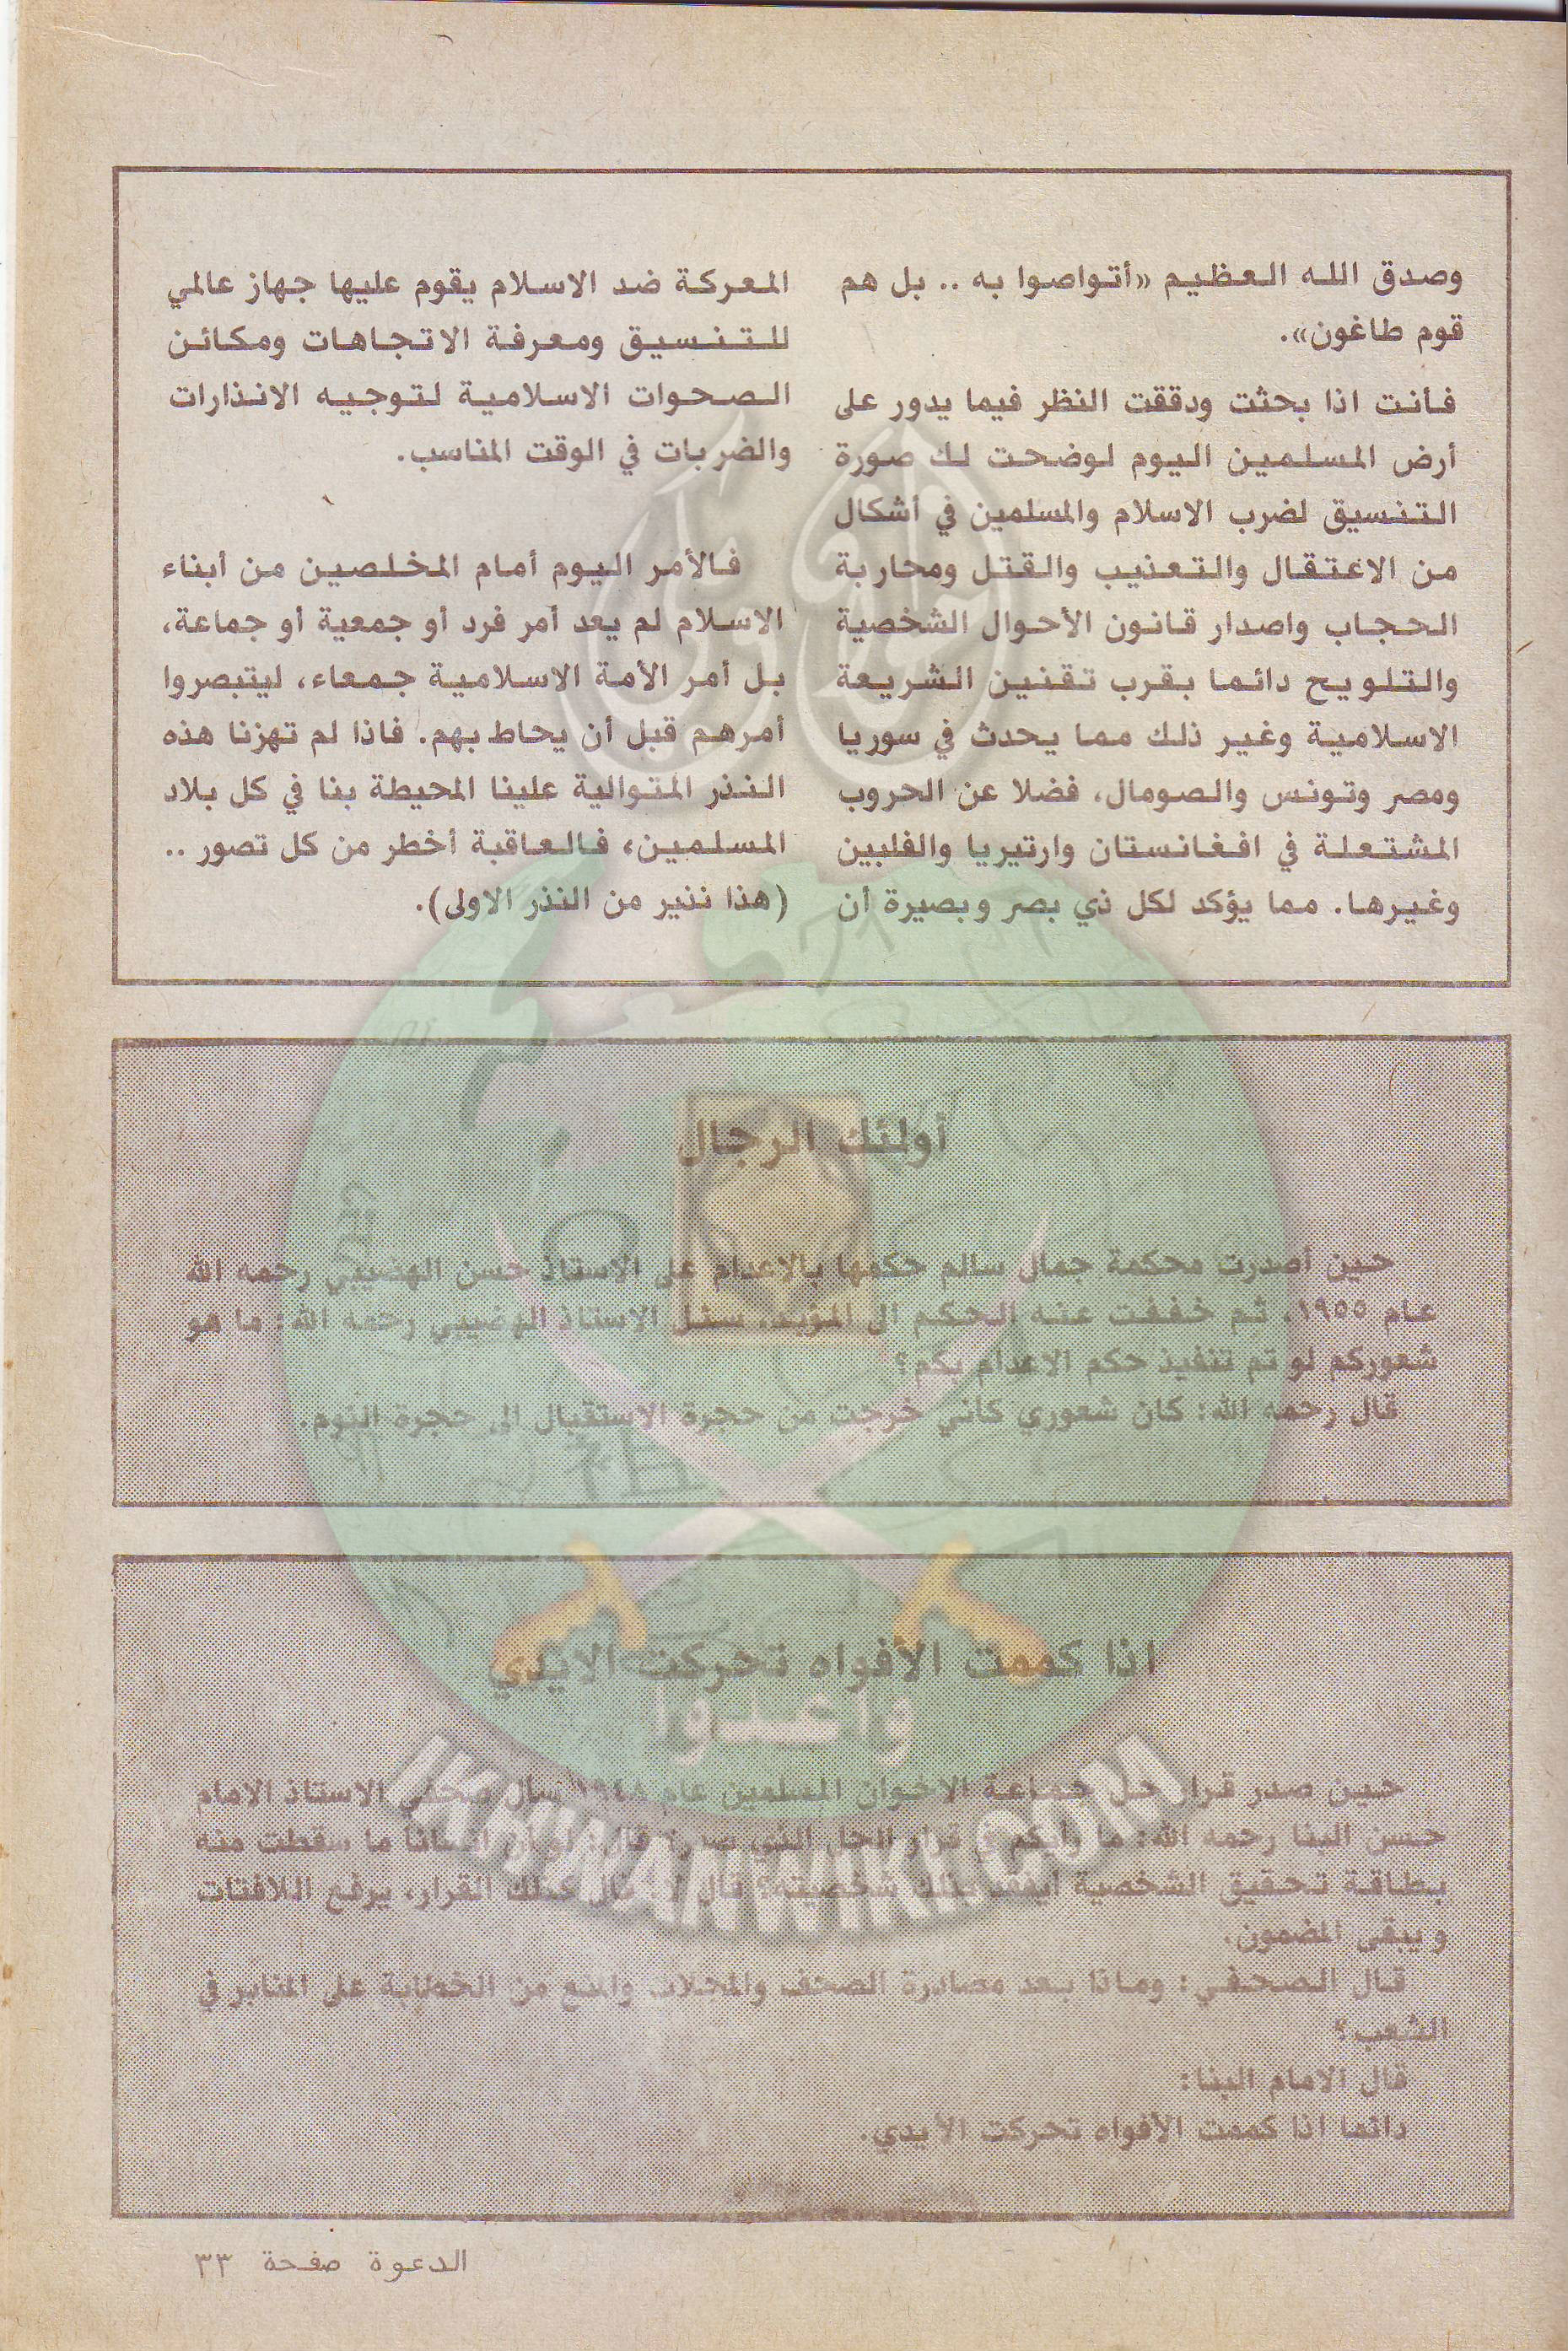 وصدق الله العظيم «أتواصوا به .. بل هم
قوم طاغون».
فأنت اذا بحثت ودققت النظر فيما يدور على
أرض المسلمين اليوم لوضحت لك صورة
التنسيق لضرب الاسلام والمسلمين في أشكال
من الاعتقال والتعذيب والقتل ومحاربة
الحجاب واصدار قانون الأحوال الشخصية
والتلويح دائما بقرب تقنين الشريعة
الاسلامية وغير ذلك مما يحدث في سوريا
ومصر وتونس والصومال، فضلا عن الحروب
المشتعلة في افغانستان وارتيريا والفلبين
وغيرها. مما يؤكد لكل ذي بصر وبصيرة أن
المعركة ضد الاسلام يقوم عليها جهاز عالمي
للتنسيق ومعرفة الاتجاهات ومكائن
الصحوات الاسلامية لتوجيه الانذارات
والضربات في الوقت المناسب.
فالأمر اليوم أمام المخلصين من أبناء
الاسلام لم يعد أمر فرد أو جمعية أو جماعة،
بل أمر الأمة الاسلامية جمعاء، ليتبصروا
أمرهم قبل أن يحاط بهم. فاذا لم تهزنا هذه
النذر المتوالية علينا المحيطة بنا في كل بلاد
المسلمين، فالعاقبة أخطر من كل تصور ..
(هذا نذير من النذر الاولى).
أولئك الرجال
حين أصدرت محكمة جمال سالم حكمها بالاعدام على الاستاذ حسن الهضيبي رحمه الله
عام ١٩٥٥، ثم خففت عنه الحكم الى المؤبد، سئل الاستاذ الهضيبي رحمه الله: ما هو
شعوركم لو تم تنفيذ حكم الاعدام بكم؟
قال رحمه الله: كان شعوري كأني خرجت من حجرة الاستقبال الى حجرة النوم.
اذا كممت الأفواه تحركت الايدي
واعدوا
حين صدر قرار حل جماعة الاخوان المسلمين عام ١٩٤٨ سأل صحفي الاستاذ الامام
حسن البنا رحمه الله: ما رأيكم في قرار الحل الذي صدر؟ قال: لو أن انسانا ما سقطت منه
بطاقة تحقيق الشخصية أيفقد بذلك شخصيته؟ قال: لا، قال كذلك القرار، يرفع اللافتات
ويبقى المضمون.
قال الصحفي: وماذا بعد مصادرة الصحف والمجلات والمنع من الخطابة على المنابر في
الشعب؟
قال الامام البنا:
دائما اذا كممت الأفواه تحركت الأيدي.
IKHWANWIKI.COM
الدعوة صفحة ٣٣